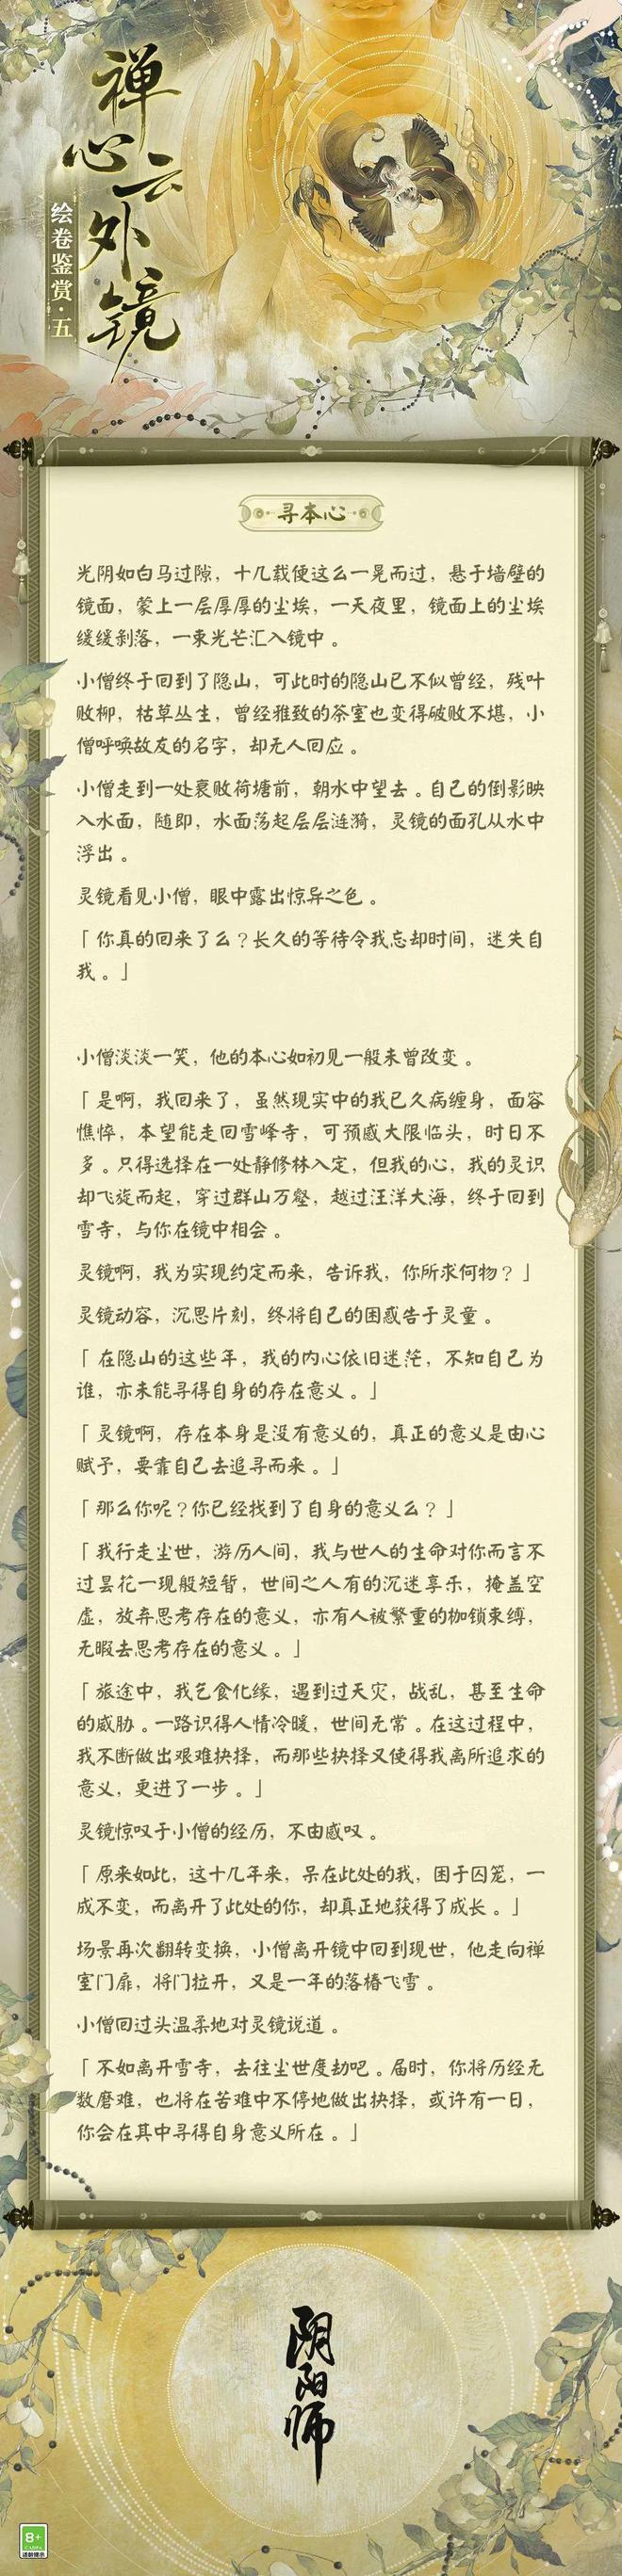 禅心云外镜
绘卷鉴赏·五
寻本心
光阴如白马过隙，十几载便这么一晃而过，悬于墙壁的
镜面，蒙上一层厚厚的尘埃，一天夜里，镜面上的尘埃
缓缓剥落，一束光芒汇入镜中。
小僧终于回到了隐山，可此时的隐山已不似曾经，残叶
败柳，枯草丛生，曾经雅致的茶室也变得破败不堪，小
僧呼唤故友的名字，却无人回应。
小僧走到一处衰败荷塘前，朝水中望去。自己的倒影映
入水面，随即，水面荡起层层涟漪，灵镜的面孔从水中
浮出。
灵镜看见小僧，眼中露出惊异之色。
「你真的回来了么？长久的等待令我忘却时间，迷失自
我。」
小僧淡淡一笑，他的本心如初见一般未曾改变。
「是啊，我回来了，虽然现实中的我已久病缠身，面容
憔悴，本望能走回雪峰寺，可预感大限临头，时日不
多。只得选择在一处静修林入定，但我的心，我的灵识
却飞旋而起，穿过群山万壑，越过汪洋大海，终于回到
雪寺，与你在镜中相会。
灵镜啊，我为实现约定而来，告诉我，你所求何物？」
灵镜动容，沉思片刻，终将自己的困惑告于灵童。
「在隐山的这些年，我的内心依旧迷茫，不知自己为
谁，亦未能寻得自身的存在意义。」
「灵镜啊，存在本身是没有意义的，真正的意义是由心
赋予，要靠自己去追寻而来。」
「那么你呢？你已经找到了自身的意义么？」
「我行走尘世，游历人间，我与世人的生命对你而言不
过昙花一现般短暂，世间之人有的沉迷享乐，掩盖空
虚，放弃思考存在的意义，亦有人被繁重的枷锁束缚，
无暇去思考存在的意义。」
「旅途中，我乞食化缘，遇到过天灾，战乱，甚至生命
的威胁。一路识得人情冷暖，世间无常。在这过程中，
我不断做出艰难抉择，而那些抉择又使得我离所追求的
意义，更进了一步。」
灵镜惊叹于小僧的经历，不由感叹。
「原来如此，这十几年来，呆在此处的我，困于囚笼，一
成不变，而离开了此处的你，却真正地获得了成长。」
场景再次翻转变换，小僧离开镜中回到现世，他走向禅
室门扉，将门拉开，又是一年的落椿飞雪。
小僧回过头温柔地对灵镜说道。
「不如离开雪寺，去往尘世度劫吧。届时，你将历经无
数磨难，也将在苦难中不停地做出抉择，或许有一日，
你会在其中寻得自身意义所在。」
阴阳师
8+
适龄提示